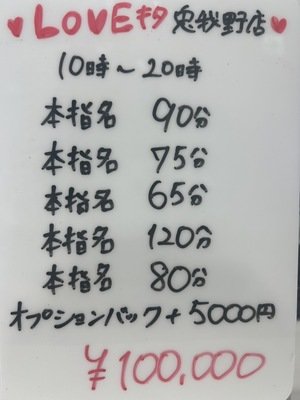 ♥LOVEキタ 兎我野店♥
10時～20時
本指名 90分
本指名 75分
本指名 65分
本指名 120分
本指名 80分
オプションバック+5000円
¥100,000